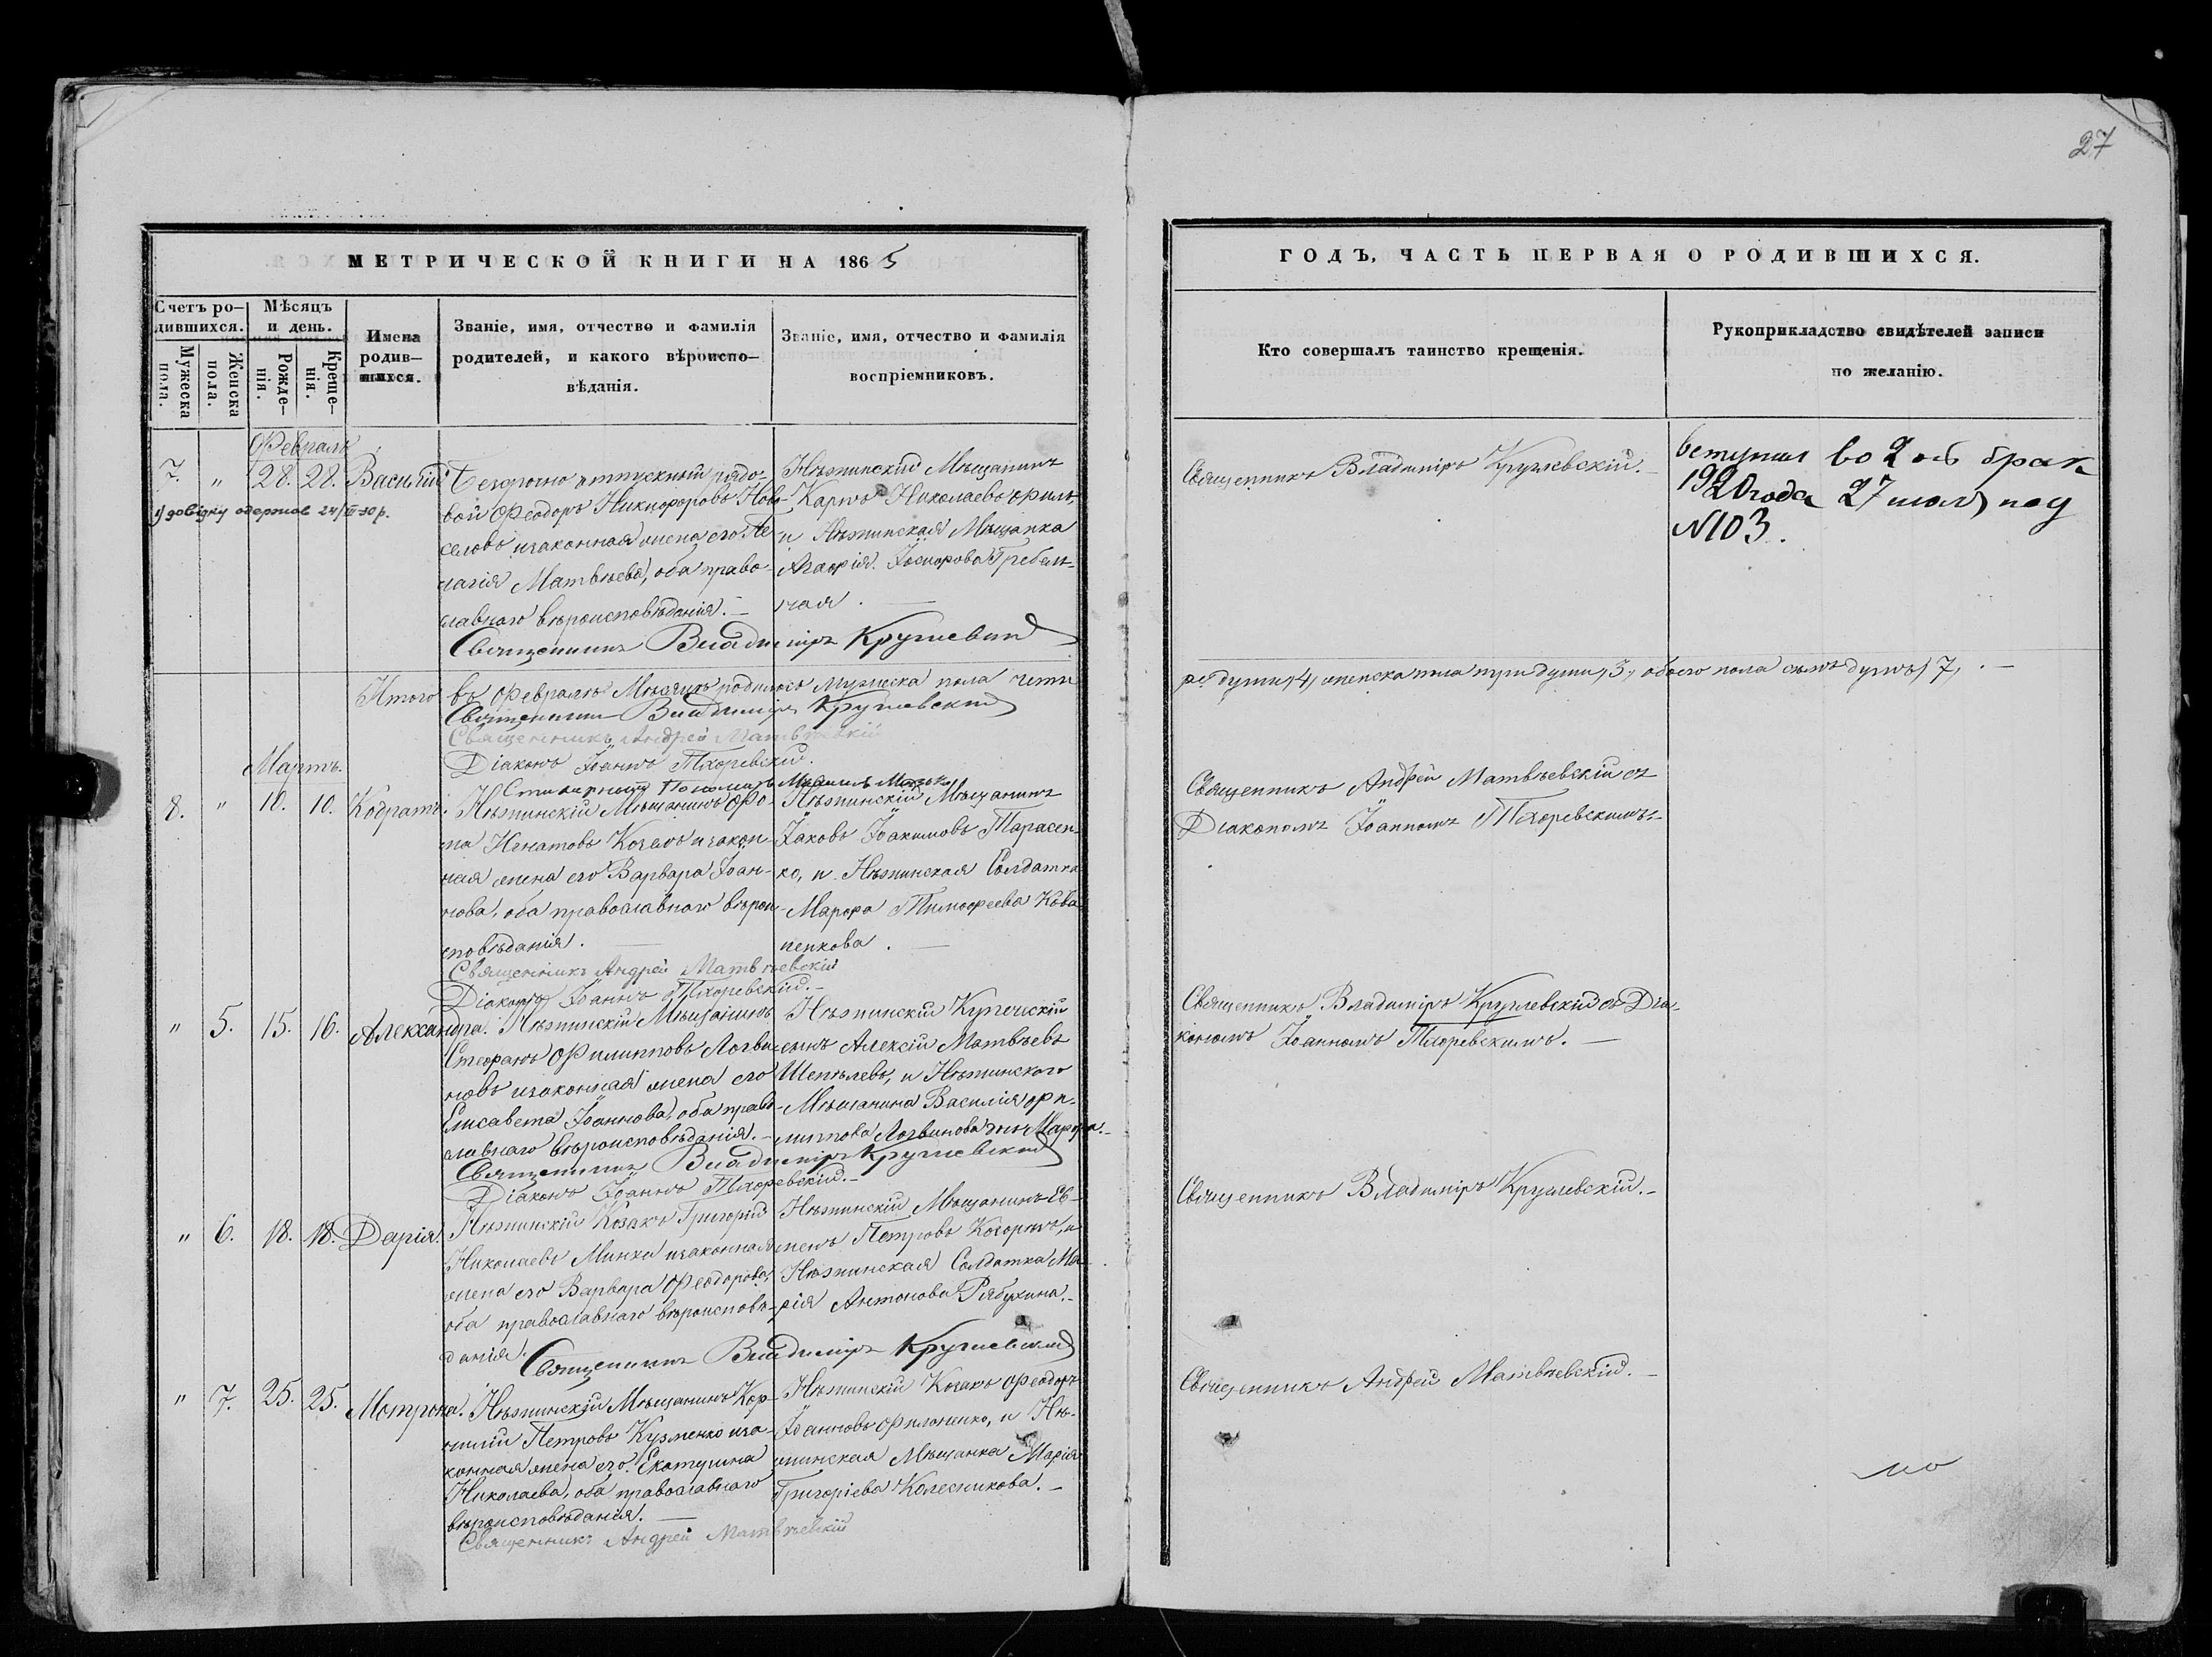 27
МЕТРИЧЕСКОЙ КНИГИ НА 1865
ГОДЪ, ЧАСТЬ ПЕРВАЯ О РОДИВШИХСЯ.
Счетъ ро-
дившихся.
Мужеска
пола.
Женска
пола.
Мѣсяцъ
и день.
Рожде-
нія.
Креще-
нія.
Имена
родив-
шихся.
Званіе, имя, отчество и фамилія
родителей, и какого вѣроиспо-
вѣданія.
Званіе, имя, отчество и фамилія
воспріемниковъ.
Кто совершалъ таинство крещенія.
Рукоприкладство свидѣтелей записи
по желанію.
Февраль
7. " 28. 28. Василій
довідку одержав 24/III-30р.
Безсрочно отпускный рядо-
вой Феодоръ Никифоровъ Ново-
селовъ изаконная жена его Пе-
лагія Матвѣева, оба право-
славнаго вѣроисповѣданія. —
Священникъ Владиміръ Кружевскій
Нѣжинскій Мѣщанинъ
Карпъ Николаевъ
и Нѣжинская Мѣщанка
Агафія
ная. —
Священникъ Владиміръ Кружевскій. —
вступил во 2 ой брак
1920 года 27 под
N 103.
Итого въ Февралѣ Мѣсяцѣ родилось Мужеска пола четы
ре души, 4, женска пола три души, 3, обоего пола семь душъ, 7, . —
Священникъ Владиміръ Кружевскій
Священникъ Андрей Матвѣевскій
Діаконъ Іоаннъ Тхоревскій.
Мартъ.
8. " 10. 10. Кодратъ.
Нѣжинскій Мѣщанинъ Фо-
ма Игнатовъ Козелъ изакон-
ная жена его Варвара Іоан-
нова, оба православнаго вѣрои-
сповѣданія. —
Священникъ Андрей Матвѣевскій
Діаконъ Іоаннъ Тхоревскій. —
Нѣжинскій Мѣщанинъ
Іаковъ Іоакимовъ Тарасен-
ко, и Нѣжинская Солдатка
Марфа Тимофеева Кова-
ленкова. —
Священникъ Андрей Матвѣевскій съ
Діакономъ Іоанномъ Тхоревскимъ. —
" 5. 15. 16. Александра.
Нѣжинскій Мѣщанинъ
Стефанъ Филипповъ Логви-
новъ изаконная жена его
Елисавета Іоаннова, оба право-
славнаго вѣроисповѣданія. —
Священникъ Владиміръ Кружевскій
Діаконъ Іоаннъ Тхоревскій. —
Нѣжинскій Купеческій
сынъ Алексій Матвѣевъ
Шепелевъ, и Нѣжинского
Мѣщанина Василія Фи-
липпова Логвинова Марфа. —
Священникъ Владиміръ Кружевскій съ Діа-
кономъ Іоанномъ Тхоревскимъ. —
" 6. 18. 18. Дарія.
Нѣжинскій Козакъ Григорій
Николаевъ Минка изаконная
жена его Варвара Феодорова,
оба православнаго вѣроисповѣ-
данія.
Священникъ Владиміръ Кружевскій
Нѣжинскій Мѣщанинъ Ев-
Петровъ и
Нѣжинская Солдатка Ма-
рія Антонова Рябухина. —
Священникъ Владиміръ Кружевскій. —
" 7. 25. 25. Мотрона.
Нѣжинскій Мѣщанинъ Кор-
нилій Петровъ Кузменко иза-
конная жена его Екатерина
Николаева, оба православнаго
вѣроисповѣданія. —
Священникъ Андрей Матвѣевскій
Нѣжинскій Козакъ Феодоръ
Іоанновъ Филоненко, и Нѣ-
жинская Мѣщанка Марія
Григоріева Колесникова. —
Священникъ Андрей Матвѣевскій. —